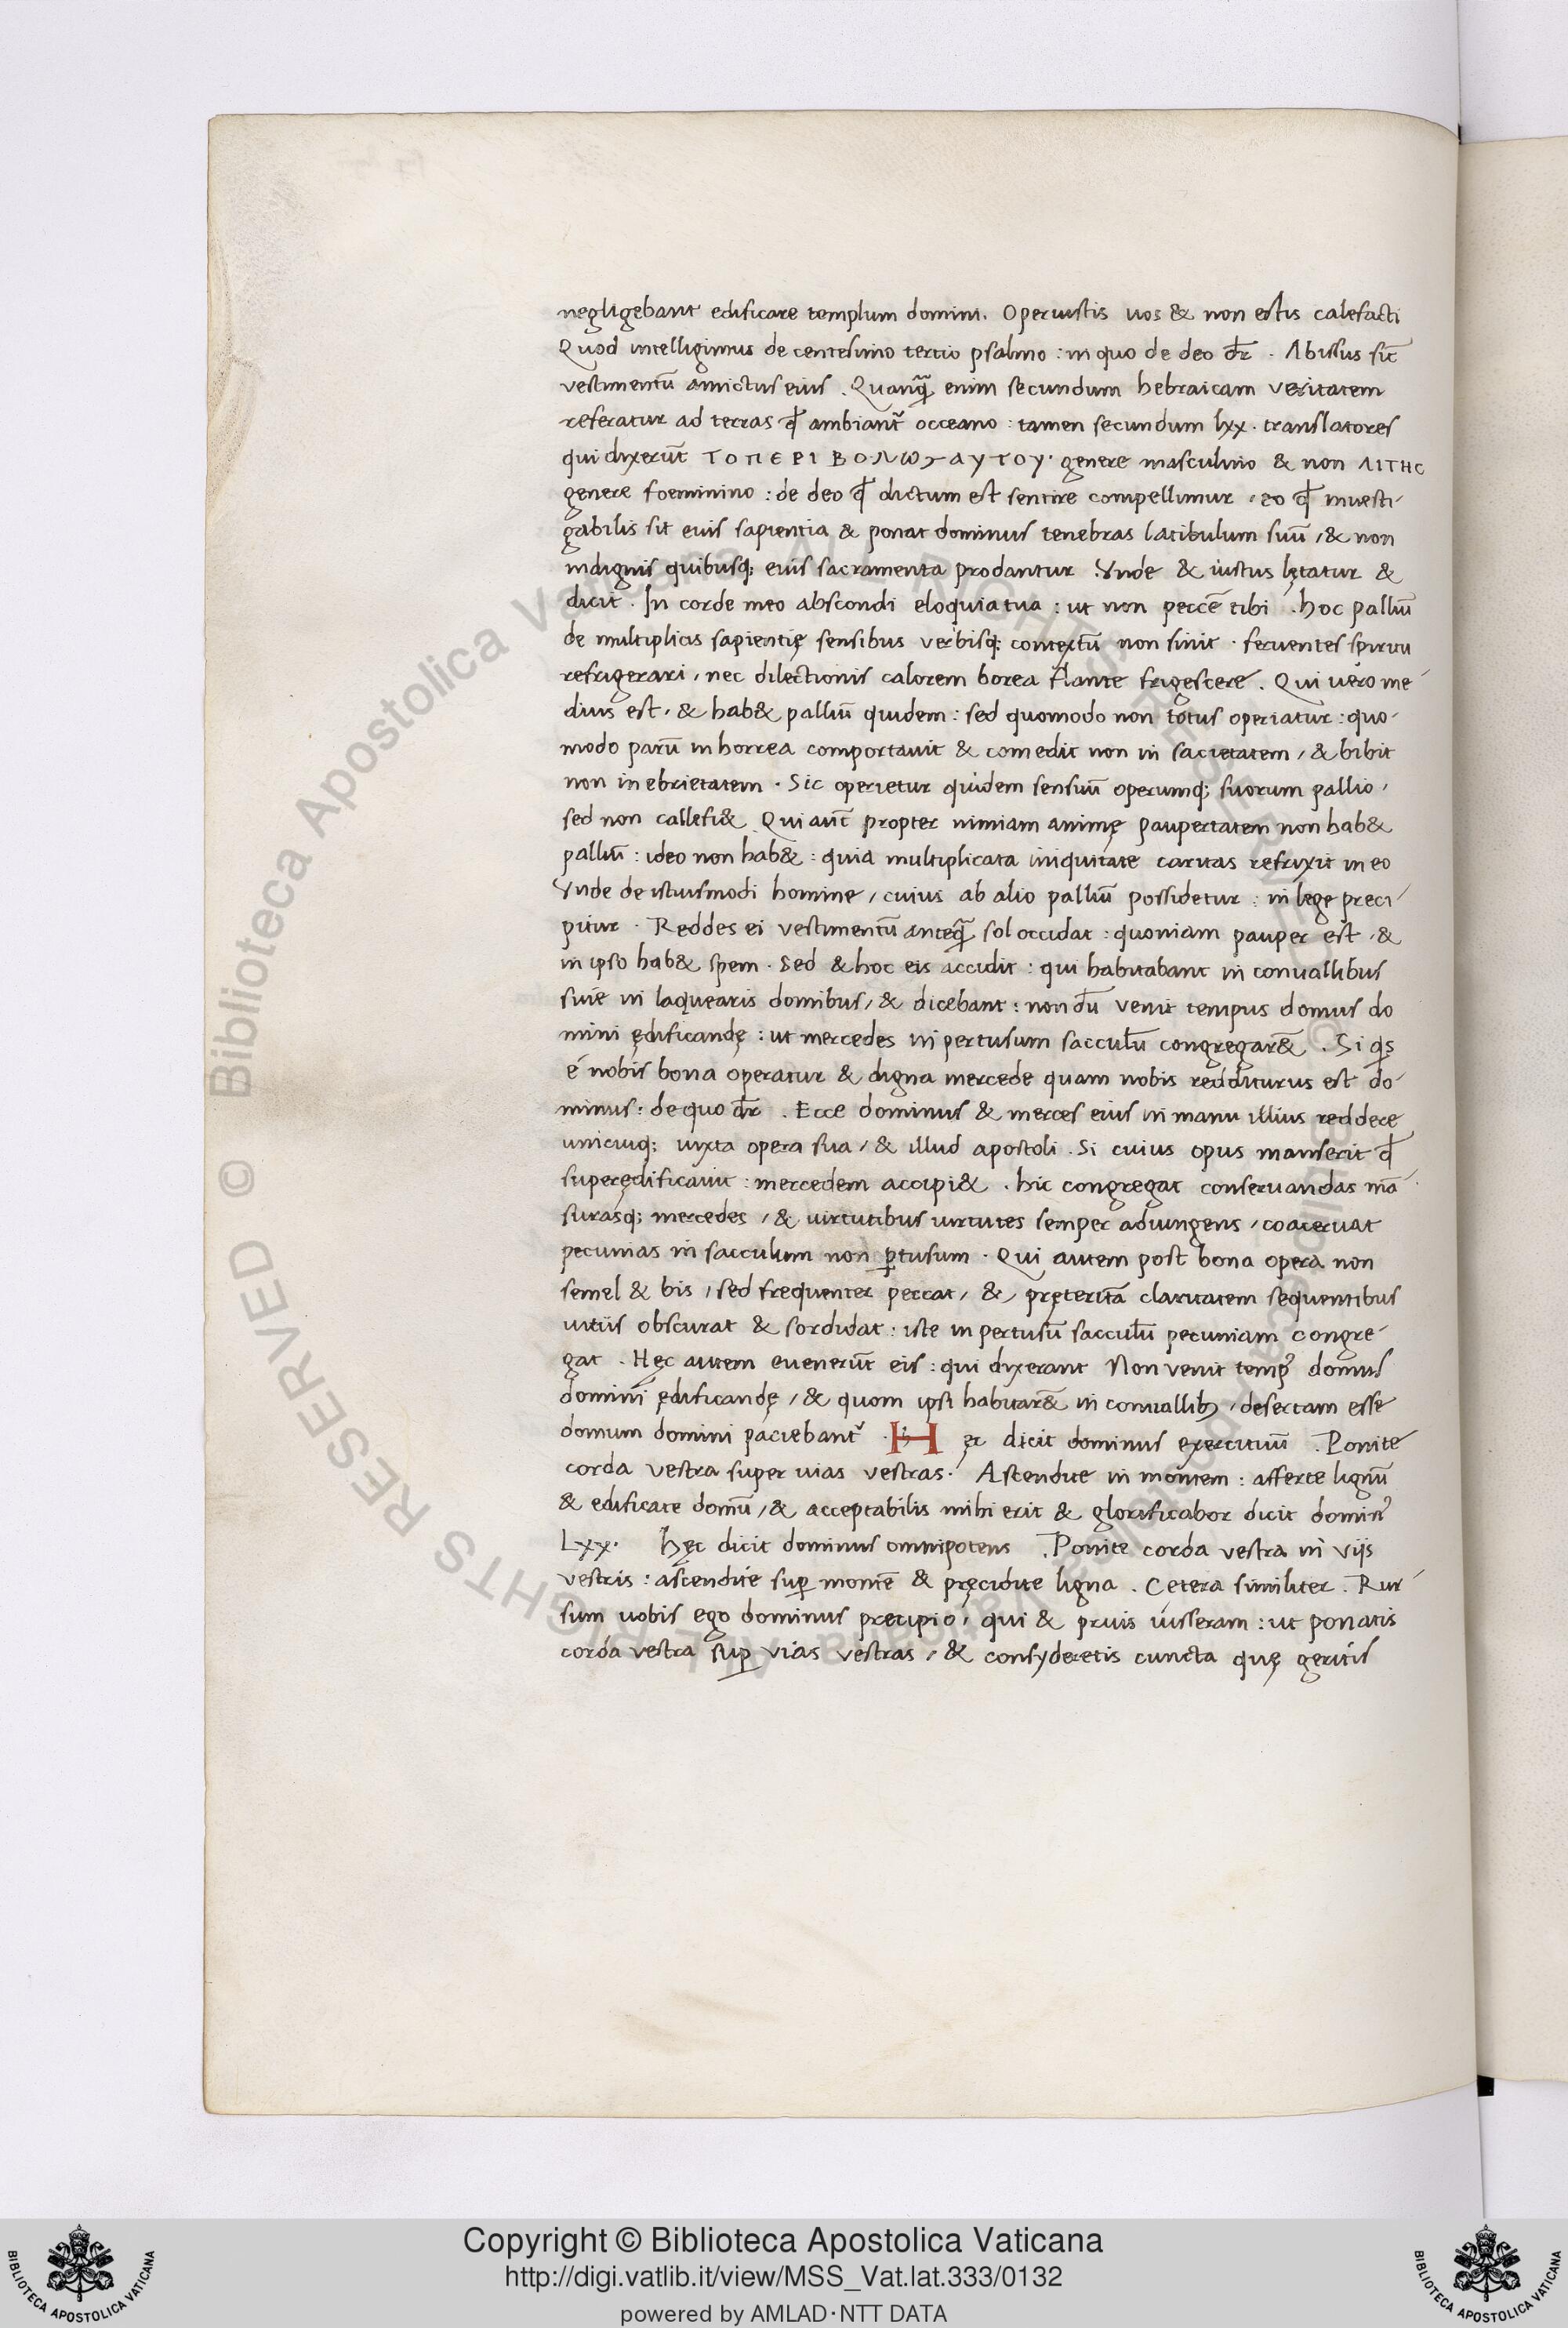 negligebant edificare templum domini. Operuistis uos & non estis calefacti
Quod intelligimus de centesimo tertio psalmo : in quo de deo dr̄ . Abissus sic̄
vestimentū amictus eius . Quanq̄ enim secundum hebraicam veritatem
referatur ad terras ꝙ ambiant̃ occeano : tamen secundum lxx . translatores
qui dixerūt ΤΟ ΠΕΡΙΒΟΛΩϹ ΑΥΤΟΥ · genere masculino & non ΛΙΤΗϹ
genere foeminino : de deo ꝙ dictum est sentire compellimur , eo ꝙ inuesti-
gabilis sit eius sapientia & ponat dominus tenebras latibulum suū , & non
indignis quibusq; eius sacramenta prodantur . Vnde & iustus lętatur &
dicit . In corde meo abscondi eloquia tua : ut non peccē tibi . hoc palliū
de multiplicis sapientię sensibus verbisq; contextū non sinit . feruentes spiritu
refrigerari , nec dilectionis calorem borea flante frigescere . Qui uero me-
dius est , & hab& palliū quidem : sed quomodo non totus operiatur : quo-
modo parū in horrea comportauit & comedit non in sacietatem , & bibit
non in ebrietatem . Sic operietur quidem sensuū operumq; suorum pallio ,
sed non callefi& . Qui aut̄ propter nimiam animę paupertatem non hab&
palliū : ideo non hab& : quia multiplicata iniquitate caritas refrixit in eo
Vnde de istiusmodi homine , cuius ab alio palliū possidetur : in lege preci-
pitur . Reddes ei vestimentū anteq̄ sol occidat : quoniam pauper est , &
in ipso hab& spem . Sed & hoc eis accidit : qui habitabant in conuallibus
siue in laquearis domibus , & dicebant : non dū venit tempus domus do
mini ędificandę : ut mercedes in pertusum saccul̄u congregar& . Si qs
é nobis bona operatur & digna mercede quam nobis redditurus est do-
minus : de quo dr̄ . Ecce dominus & merces eius in manu illius reddere
unicuiq; iuxta opera sua , & illud apostoli . Si cuius opus manserit ꝙ
superędificauit : mercedem accipi& . hic congregat conseruandas mā-
surasq; mercedes , & uirtutibus uirtutes semper adiungens , coaceruat
pecunias in sacculum non ꝑtusum . Qui autem post bona opera non
semel & bis , sed frequenter peccat , & pręteritā claritatem sequentibus
uitiis obscurat & sordidat : iste in pertusū saccul̄u pecuniam congre-
gat . Hęc autem euenerūt eis : qui dixerant Non venit temp᾽ domus
domini ędificandę , & quom ipsi habitar& in conuallib; , desertam esse
domum domini paciebant̃ . H ęc dicit dominus exercituū . Ponite
corda vestra super uias vestras . Ascendite in montem : afferte lignū
& edificate domū , & acceptabilis mihi erit & glorificabor dicit domin᾽
Lxx . hęc dicit dominus omnipotens . Ponite corda vestra in viis
vestris : ascendite suꝑ montē & pręcidite ligna . Cetera similiter . Rur-
sum uobis ego dominus precipio , qui & prius iusseram : ut ponatis
corda vestra suꝑ vias vestras , & consyderetis cuncta quę geritis
© Biblioteca Apostolica Vaticana ALL RIGHTS RESERVED
Copyright © Biblioteca Apostolica Vaticana
http://digi.vatlib.it/view/MSS_Vat.lat.333/0132
powered by AMLAD·NTT DATA
BIBLIOTECA APOSTOLICA VATICANA
BIBLIOTECA APOSTOLICA VATICANA